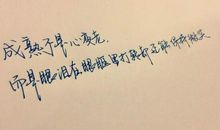 成熟不是心变老
而是眼泪在眼眶里打转却还能保持微笑